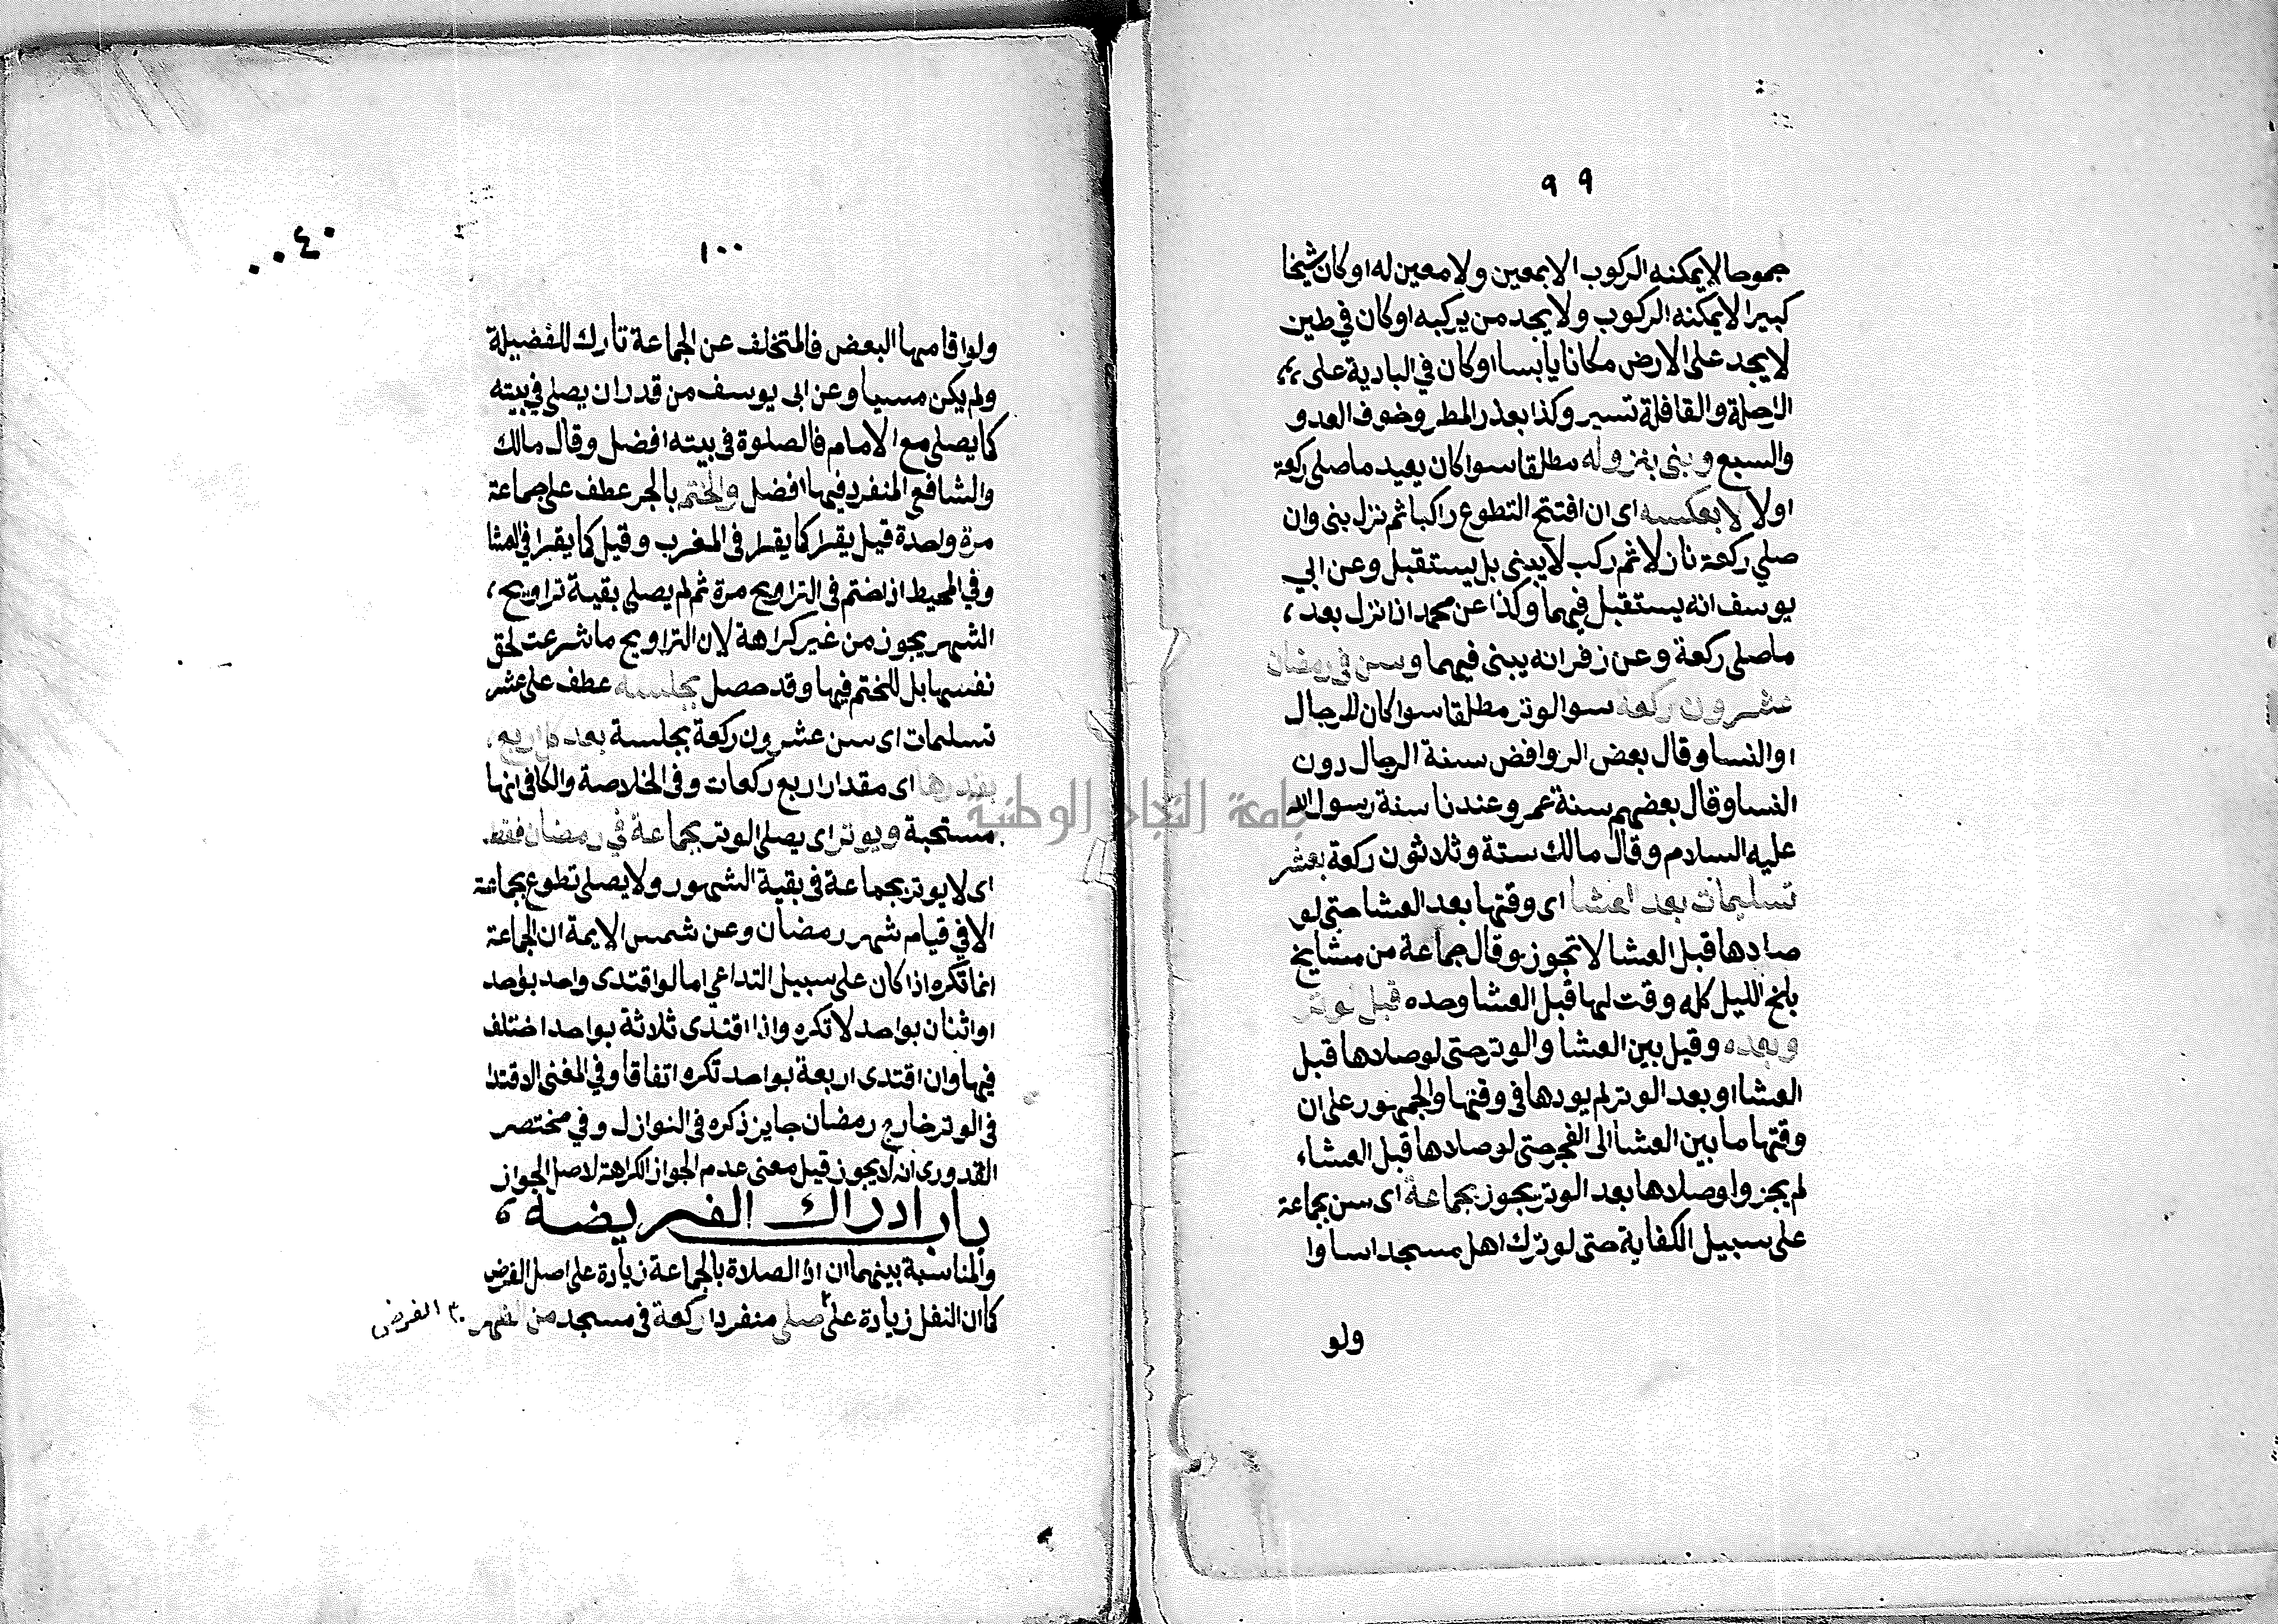 ٩٩
جموحا لا يمكنه الركوب الا بمعين ولا معين له او كان شيخا
كبيرا لا يمكنه الركوب ولا يجد من يركبه او كان في طين
لا يجد على الارض مكانا يابسا او كان في البادية على
الراحلة والقافلة تسير وكذا بعذر المطر وخوف العدو
والسبع وبنى بنزوله مطلقا سوا كان بعيد ما صلى ركعة
اولا لا بعكسه اى ان افتتح التطوع راكبا ثم نزل بنى وان
صلي ركعة نازلا ثم ركب لا يبنى بل يستقبل وعن ابي
يوسف انه يستقبل فيهما وكذا عن محمد اذا نزل بعد
ما صلى ركعة وعن زفر انه يبنى فيهما وسن في رمضان
عشرون ركعة سوا الوتر مطلقا سوا كان للرجال
او النسا وقال بعض الروافض سنة الرجال دون
النسا وقال بعضهم سنة عمر وعندنا سنة رسول الله
عليه السلام وقال مالك ستة وثلاثون ركعة بعشر
تسليمات بعد العشا اى وقتها بعد العشا حتى لو
صلاها قبل العشا لا تجوز وقال جماعة من مشايخ
بلخ الليل كله وقت لها قبل العشا وحده قبل الوتر
وبعده وقيل بين العشا والوتر حتى لو صلاها قبل
العشا او بعد الوتر لم يودها في وقتها والجمهور على ان
وقتها ما بين العشا الى الفجر حتى لو صلاها قبل العشاء
لم يجز ولو صلاها بعد الوتر يجوز بجماعة اى سن بجماعة
على سبيل الكفاية حتى لو ترك اهل مسجد اساوا
ولو
٠٤٠٠
١٠٠
ولو اقامها البعض فالمتخلف عن الجماعة تارك للفضيلة
ولم يكن مسيا وعن ابى يوسف من قدر ان يصلى في بيته
كما يصلى مع الامام فالصلوة في بيته افضل وقال مالك
والشافعي المنفرد فيها افضل والختم بالجر عطف على جماعة
مرة واحدة قيل يقرا كما يقرا في المغرب وقيل كما يقرا في العشا
وفي المحيط اذا ختم في التراويح مرة ثم لم يصلي بقية تراويح
الشهر يجوز من غير كراهة لان التراويح ما شرعت لحق
نفسها بل للختم فيها وقد حصل بجلسة عطف على عشر
تسليمات اى سن عشرون ركعة بجلسة بعد كل اربع
بقدرها اى مقدار اربع ركعات وفى الخلاصة والكافى انها
مستحبة ويوتر اى يصلى الوتر بجماعة في رمضان فقط
اى لا يوتر بجماعة في بقية الشهور ولا يصلى تطوع بجماعة
الا في قيام شهر رمضان وعن شمس الايمة ان الجماعة
انما تكره اذا كان على سبيل التداعي اما لو اقتدى واحد بواحد
او اثنان بواحد لا تكره واذا اقتدى ثلاثة بواحد اختلف
فيها وان اقتدى اربعة بواحد تكره اتفاقا وفي المغنى الاقتدا
في الوتر خارج رمضان جايز ذكره في النوازل وفي مختصر
القدورى انه لا يجوز قيل معنى عدم الجواز الكراهة لا صل الجواز
باب ادراك الفريضة
والمناسبة بينهما ان اذا الصلاة بالجماعة زيادة على اصل الفرض
كما ان النفل زيادة على صلى منفردا ركعة في مسجد من الظهر
الفرض
جامعة النجاح الوطنية